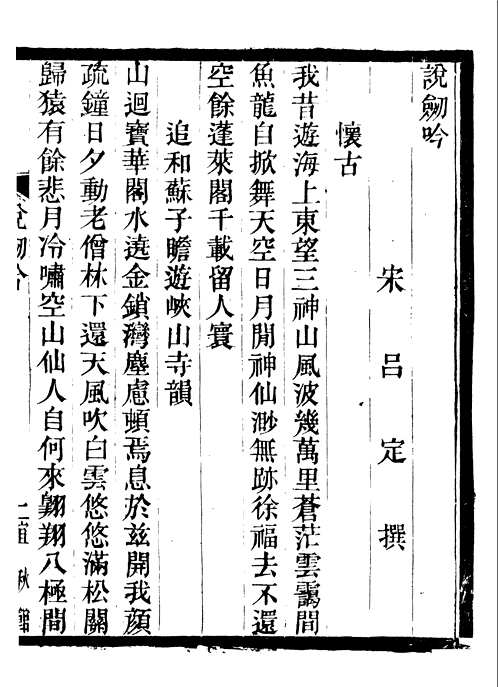 說劒吟
宋呂定撰
懷古
我昔遊海上東望三神山風波幾萬里蒼茫雲靄間
魚龍自掀舞天空日月閒神仙渺無跡徐福去不還
空餘蓬萊閣千載留人寰
追和蘇子瞻遊峽山寺韻
山迴寶華閣水遶金鎖灣塵慮頓焉息於玆開我顔
疏鐘日夕動老僧林下還天風吹白雲悠悠滿松關
歸猿有餘悲月冷嘯空山仙人自何來翺翔八極間